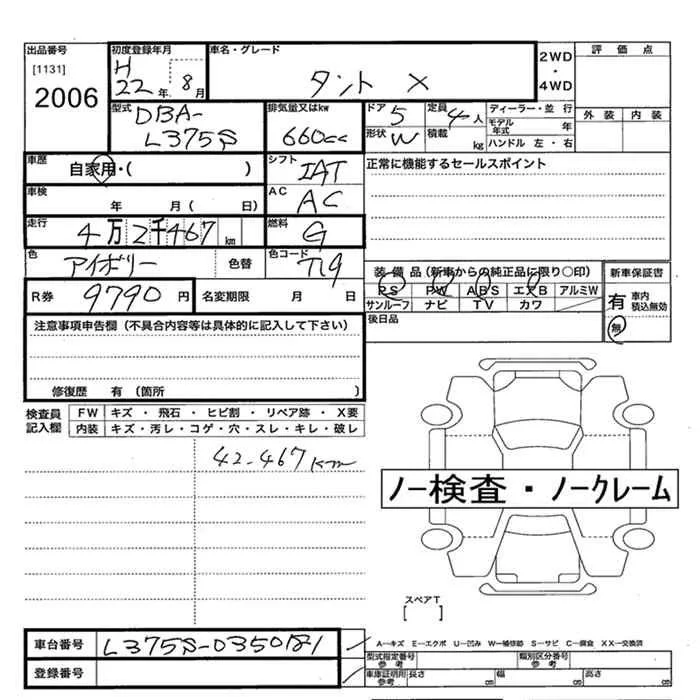 出品番号 初度登録年月 車名・グレード 2WD・4WD 評価点
[1131] H 22年 8月 タント X
2006
型式 DBA-L375S 排気量又はkw 660cc ドア 5 定員 4人 ディーラー・並行 外装 内装
形状 W 積載 kg モデル年式 年 ハンドル 左・右
車歴 自家用・( ) シフト IAT 正常に機能するセールスポイント
車検 年 月( 日) AC AC
走行 4万2千467km 燃料 G
色 アイボリー 色替 色コード T19 装備品(新車からの純正品に限り○印) 新車保証書
R券 9790円 名変期限 月 日 PS PW ABS エアB アルミW 有 車内積込無効
サンルーフ ナビ TV カワ 無
注意事項申告欄(不具合内容等は具体的に記入して下さい) 後日品
修復歴 有 (箇所 )
検査員記入欄 FW キズ・飛石・ヒビ割・リペア跡・X要
内装 キズ・汚レ・コゲ・穴・スレ・キレ・破レ
42-467km
ノー検査・ノークレーム
スペアT
[ ]
車台番号 L375S-0350181 A－キズ E－エクボ U－凹み W－補修跡 S－サビ C－腐食 XX－交換済
登録番号 型式指定番号 参考 類別区分番号 参考
車庫証明用 参考 長さ cm 幅 cm 高さ cm